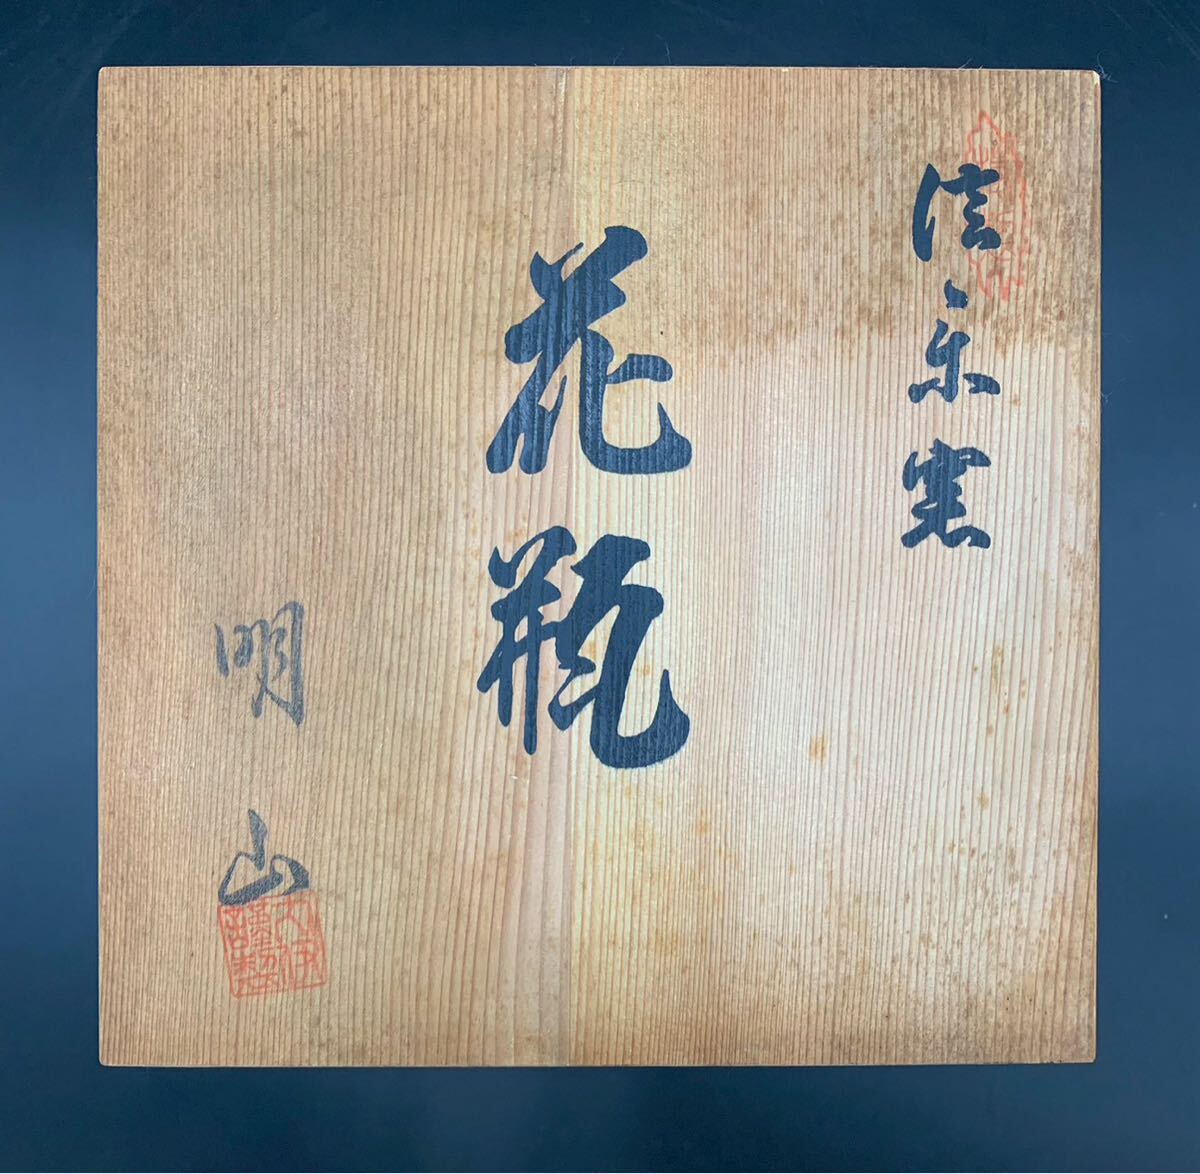 信楽窯
花瓶
明山